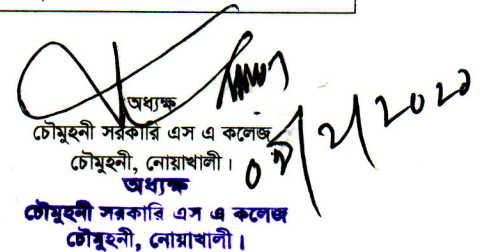 অধ্যক্ষ
চৌমুহনী সরকারি এস এ কলেজ
চৌমুহনী, নোয়াখালী।
অধ্যক্ষ
চৌমুহনী সরকারি এস এ কলেজ
চৌমুহনী, নোয়াখালী।